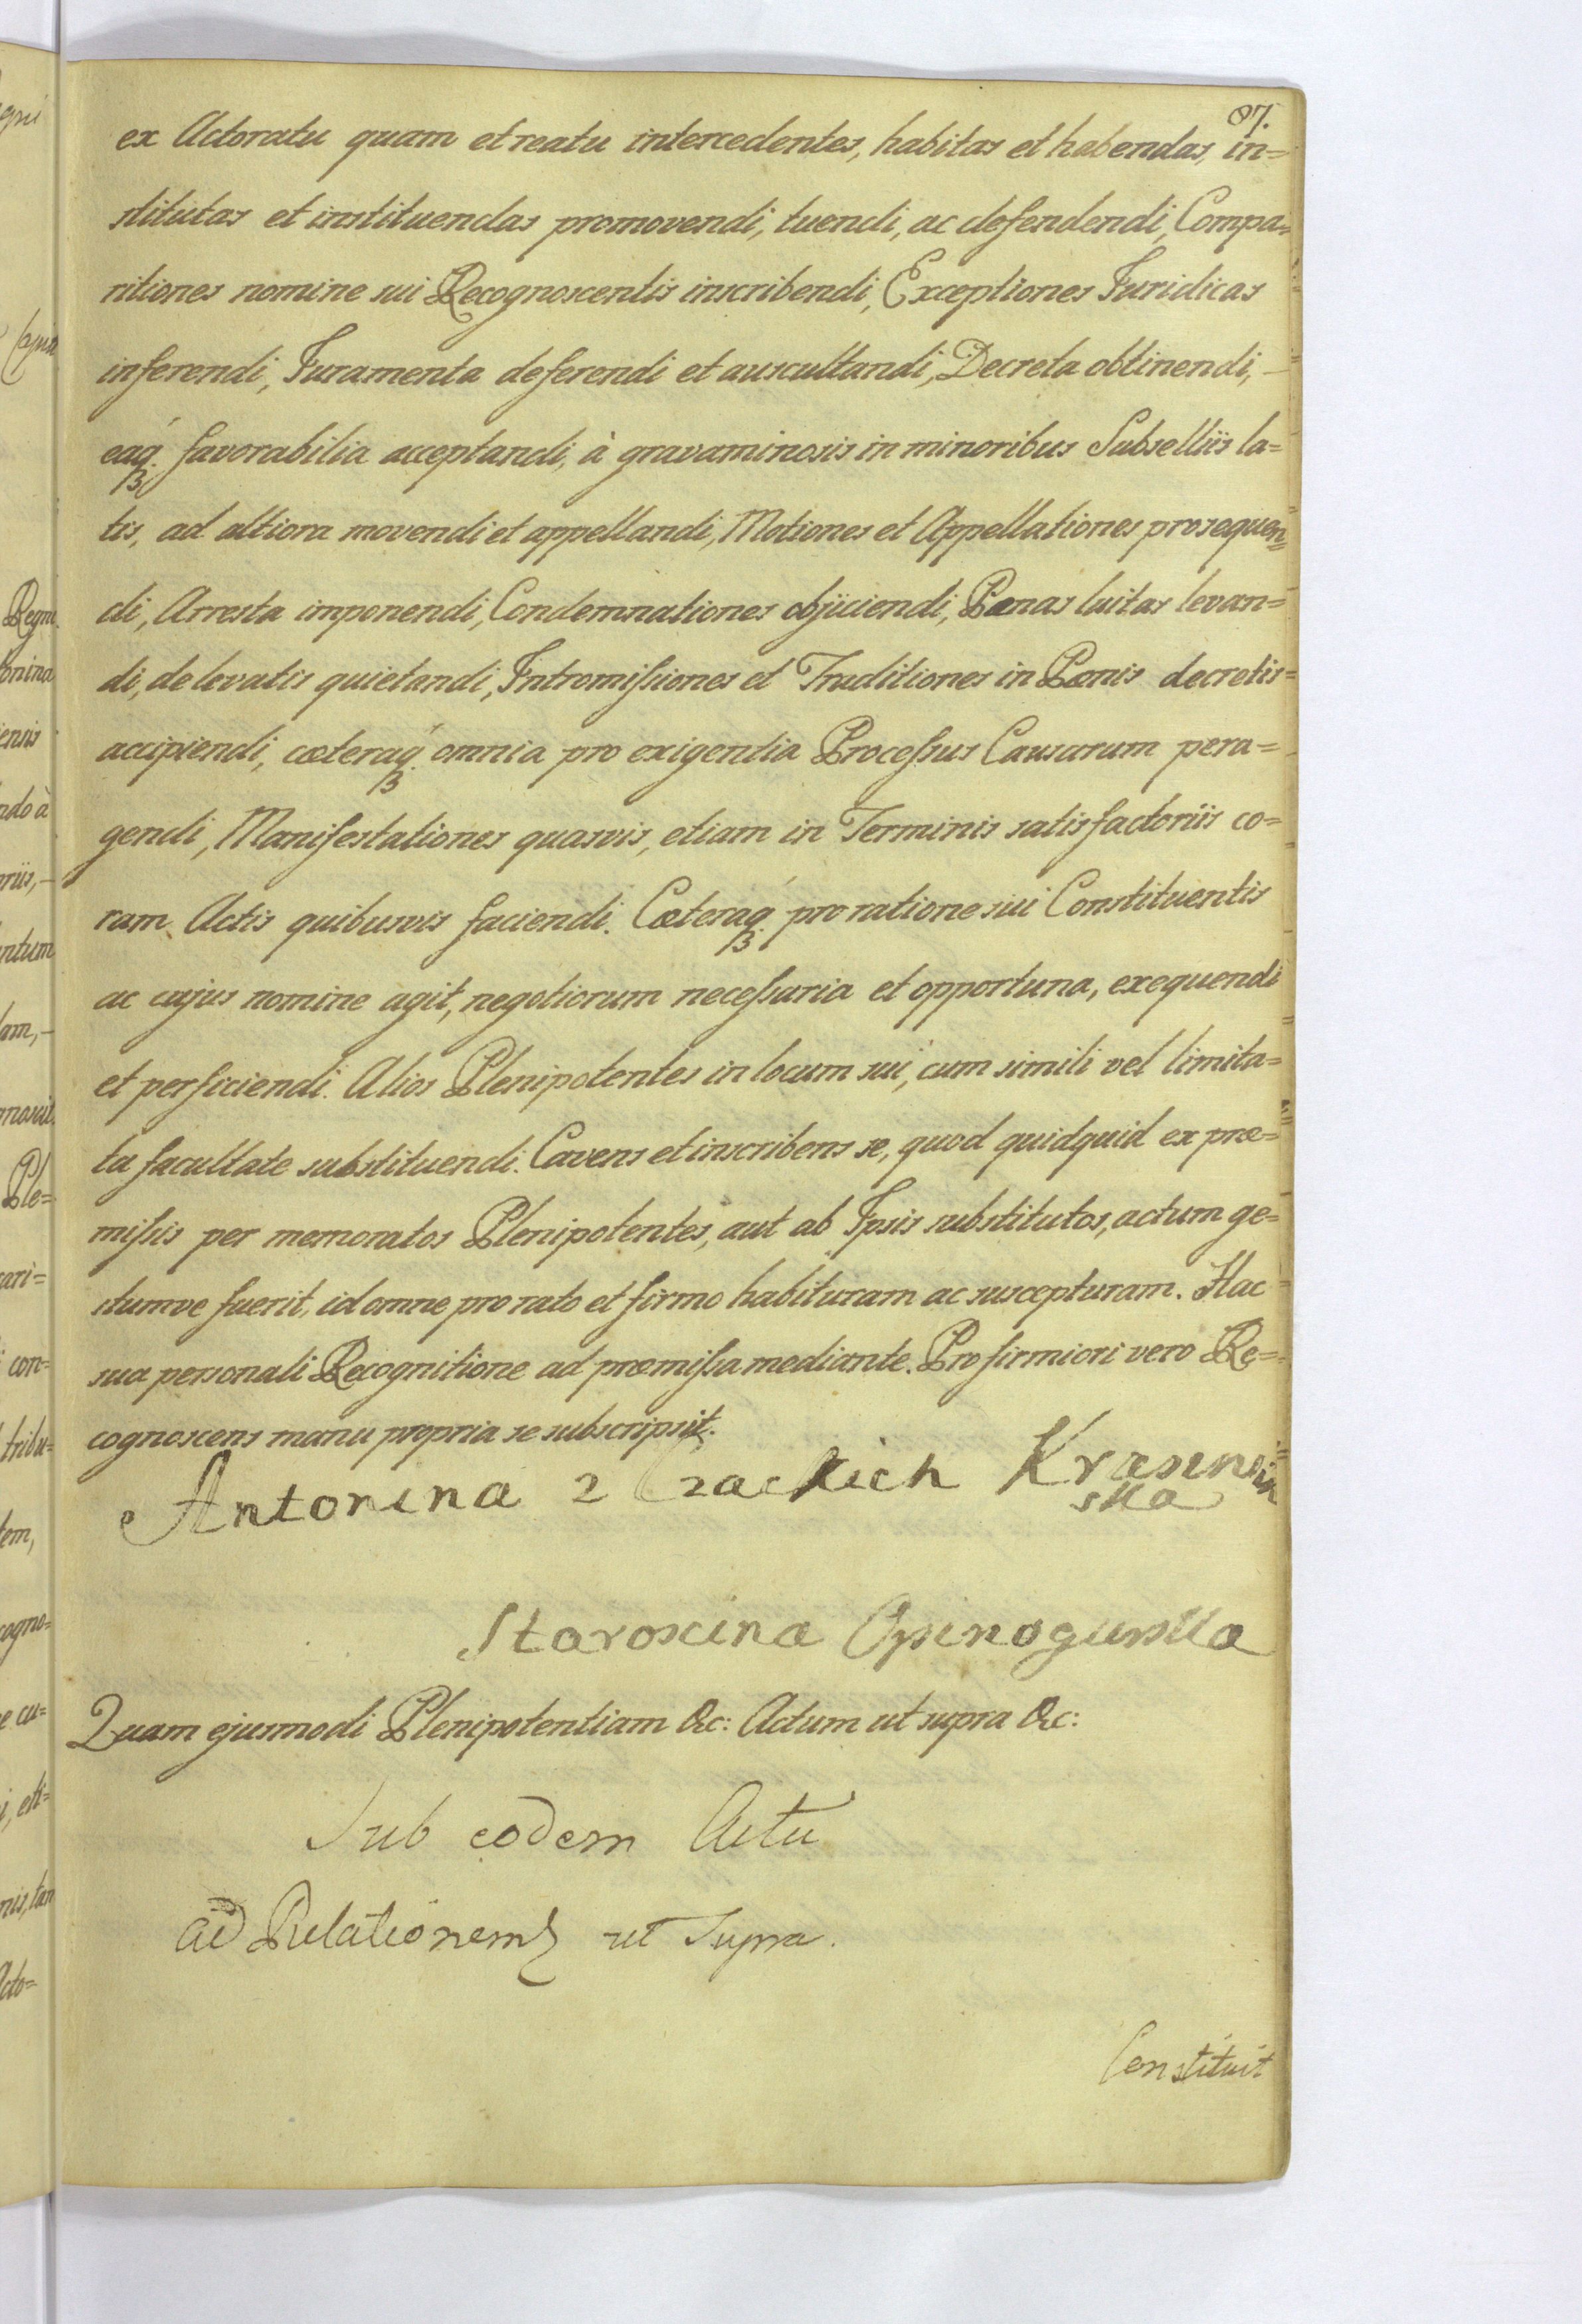 87.
ex Actoratu quam et reatu intercedentes, habitas et habendas, in=
stitutas et instituendas promovendi, tuendi, ac defendendi, Compa=
ritiones nomine sui Recognoscentis inscribendi, Exceptiones Juridicas
inferendi, Juramenta deferendi et auscultandi, Decreta obtinendi, –
eaq́ꝫ favorabilia acceptandi, à gravaminosis in minoribus Subselliis la=
tis, ad altiora movendi et appellandi, Motiones et Appellationes prosequen=
di, Arresta imponendi, Condemnationes objiciendi, Pœnas luitas levan=
di, de levatis quietandi, Intromiſsiones et Traditiones in Pœnis decretis=
accipiendi, cæteraq́ꝫ omnia pro exigentia Proceſsus Causarum pera=
gendi, Manifestationes quasvis, etiam in Terminis satisfactoriis co=
ram Actis quibusvis faciendi. Cæteraq́ꝫ pro ratione sui Constituentis
ac cujus nomine agit, negotiorum neceſsaria et opportuna, exequendi
et perficiendi. Alios Plenipotentes in locum sui, cum simili vel limita=
ta facultate substituendi. Cavens et inscribens se, quod quidquid ex præ=
miſsis per memoratos Plenipotentes, aut ab Ipsis substitutos, actum ge=
stumve fuerit, id omne pro rato et firmo habituram ac suscepturam. Hac
sua personali Recognitione ad præmiſsa mediante. Pro firmiori vero Re=
cognoscens manu propria se subscripsit.
Antonina z Czackich Krasin
ska
Staroscina Opinogurska
Quam ejusmodi Plenipotentiam &c: Actum ut supra &c:
Sub eodem Actu
ad Relationem ut Supra.
Constituit